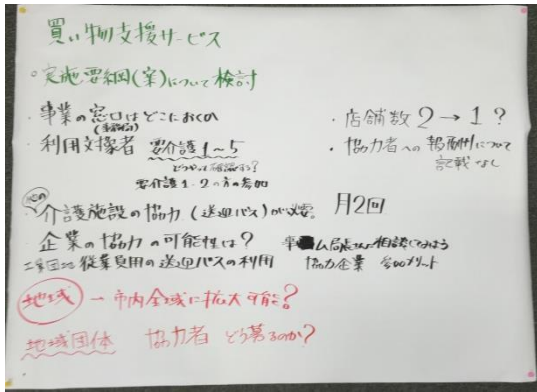 買い物支援サービス
○実施要綱(案)について検討
・事業の窓口はどこにおくのか
(事務局)
・利用対象者 要介護1~5
どうやって確認する?
要介護1.2の方の参加
・店舗数2→1?
・協力者への報酬について
記載なし
他の
・介護施設の協力(送迎バス)が必要。 月2回
企業の協力の可能性は?
ム局長さんに相談してみよう
工業団地 従業員用の送迎バスの利用
協力企業 参加メリット
地域 → 市内全域に拡大可能?
地域団体 協力者 どう募るのか?